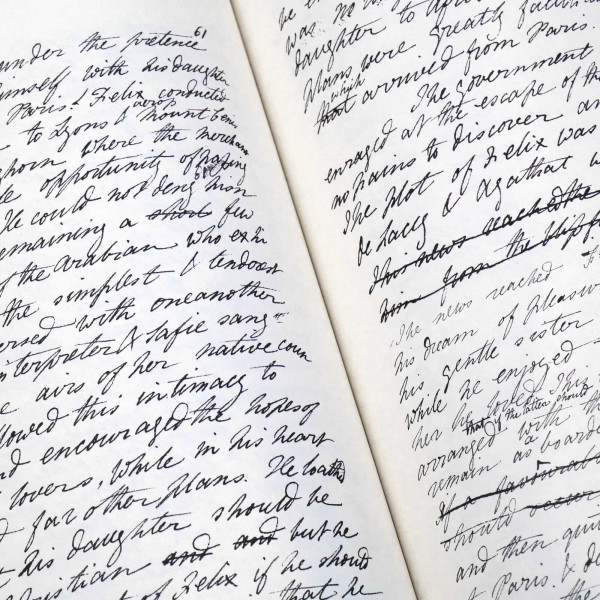 61
under the pretence
himself with his daughter
Paris. Felix conducted
to Lyons & across Mount Cenis
ghorn where the merchan
le opportunity of
He could not deny him
remaining a short few
of the Arabian who exhi
the simplest & tenderest
ersed with one another
nterpreter & Safie sang
e airs of her native coun
llowed this intimacy to
nd encouraged the hopes of
lovers, while in his heart
d far other plans. He loath
t his daughter should be
ristian and and but he
t of Felix if he should
that he
he e
was no
daughter to
plans were greatly
which
that arrived from Paris.
The government
enraged at the escape of the
no pains to discover an
The plot of Felix was
de Lacey & Agatha t w
This news reached the
him from the blissf
The news reached F
his dream of pleasur
his gentle sister
while he enjoyed
her he loved This
that if the latter should
arranged with the
remain as a boarde
If a favourab
should
and then quit
Paris. & d
the